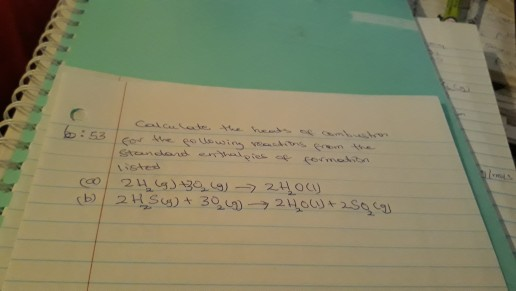 Calculate the heats of combustion
6:53 for the following reactions from the
standard enthalpies of formation
listed
(a) 2H₂(g) + 3O₂(g) → 2H₂O(l)
(b) 2H₂S(g) + 3O₂(g) → 2H₂O(l) + 2SO₂(g)